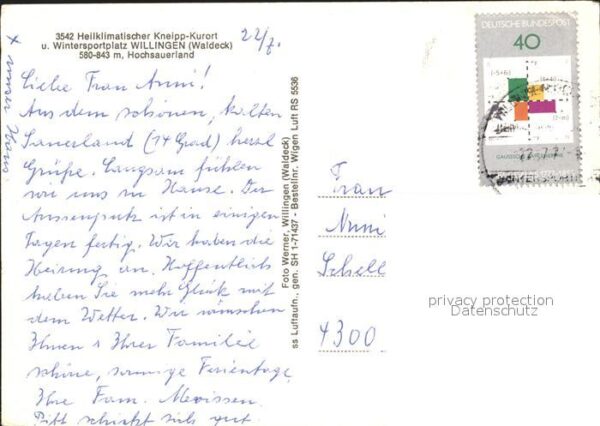 3542 Heilklimatischer Kneipp-Kurort
u. Wintersportplatz WILLINGEN (Waldeck)
580-843 m, Hochsauerland
22/7.
Liebe Frau Anni!
Aus dem schönen, kalten
Sauerland (14 Grad) herzl
Grüße. Langsam fühlen
wir uns zu Hause. Der
Aussenputz ist in einigen
Tagen fertig. Wir haben die
Heizung an. Hoffentlich
haben Sie mehr Glück mit
dem Wetter. Wir wünschen
Ihnen + Ihrer Familie
schöne, sonnige Ferientage
Ihre Fam. Mevissen.
Bitt schickt sich gut.
x unser Haus
Foto Werner, Willingen (Waldeck)
ss Luftaufn., gen. SH 1-71437 - Bestellnr. Wigen Luft RS 5536
DEUTSCHE BUNDESPOST
40
(-5+6i)
Frau
Anni
Schell
4300
privacy protection
Datenschutz